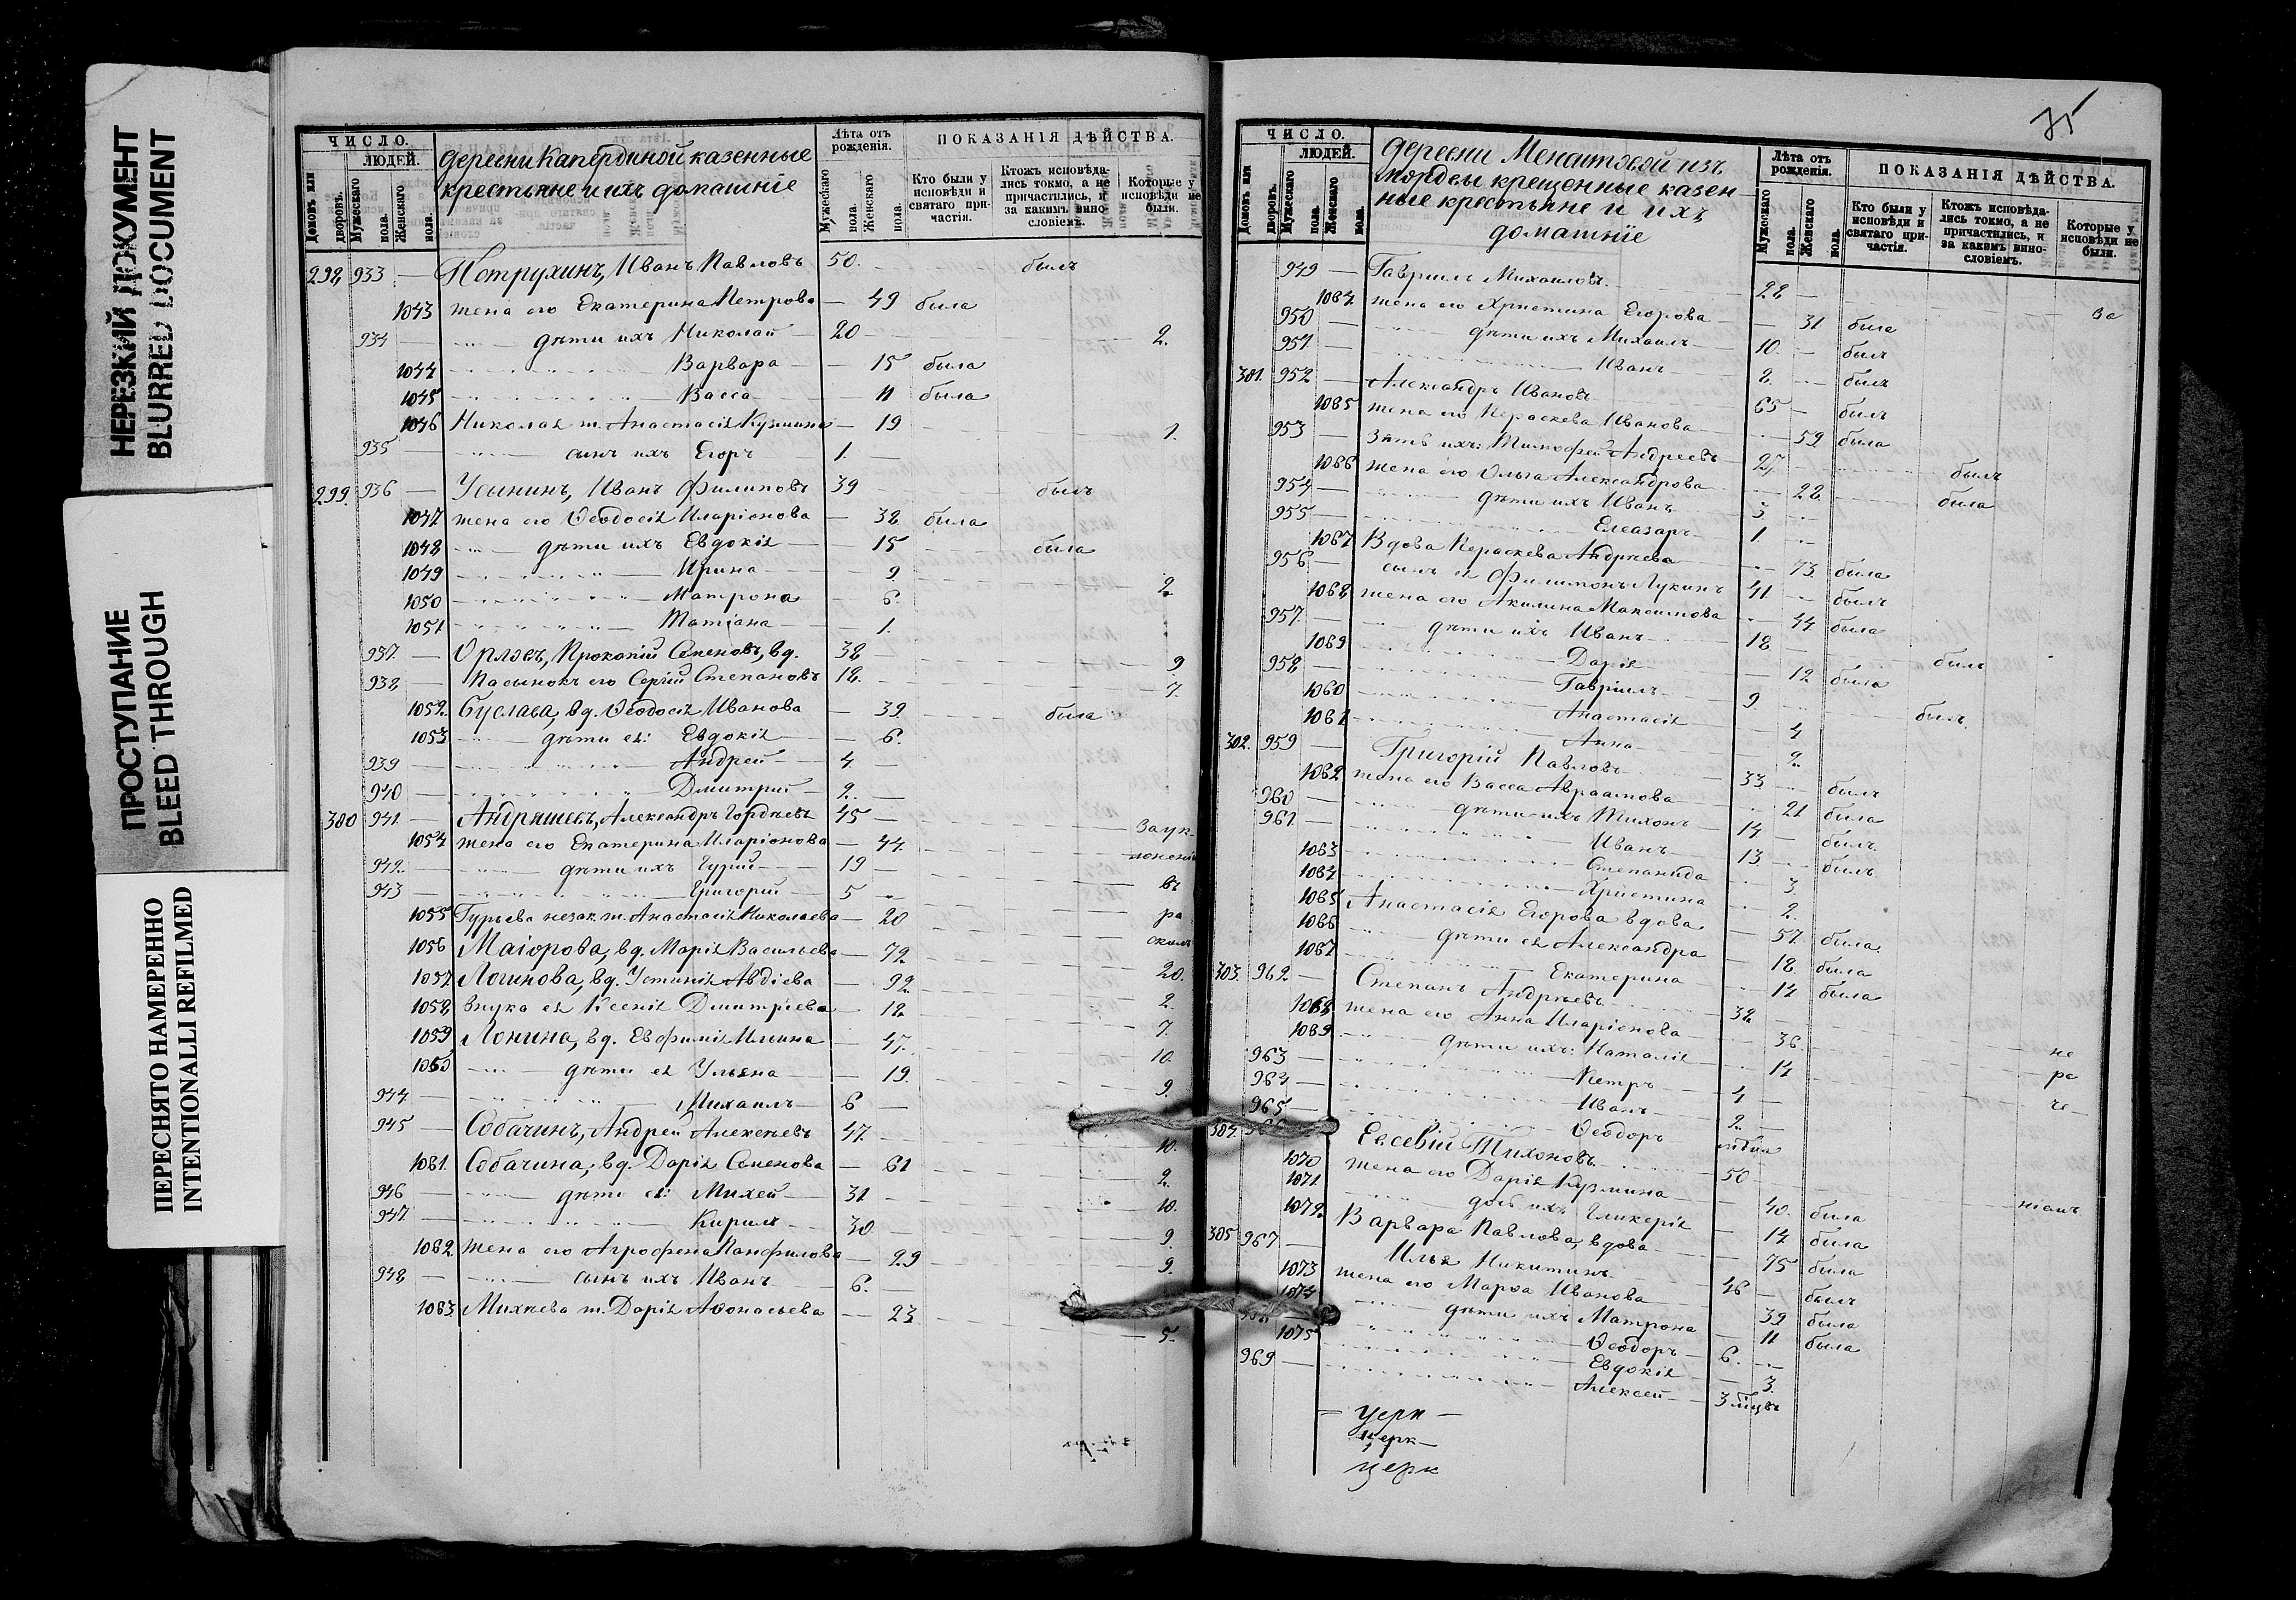 НЕРЕЗКИЙ ДОКУМЕНТ
BLURRED DOCUMENT
ПРОСТУПАНИЕ
BLEED THROUGH
ПЕРЕСНЯТО НАМЕРЕННО
INTENTIONALLI REFILMED
ЧИСЛО.
ЛЮДЕЙ.
Домовъ или дворовъ.
Мужескаго пола.
Женскаго пола.
деревни Капердиной казенные
крестьяне и ихъ домашніе
Лѣта отъ рожденія.
Мужескаго пола.
Женскаго пола.
ПОКАЗАНІЯ ДѢЙСТВА.
Кто были у исповѣди и святаго причастія.
Ктожъ исповѣдались токмо, а не причастились, и за какимъ винословіемъ.
Которые у исповѣди не были.
298 933 Петрухинъ, Иванъ Павловъ 50 былъ
1043 жена его Екатерина Петрова 49 была
934 дѣти ихъ Николай 20 2.
1044 Варвара 15 была
1045 Васса 11 была
1046 Николая ж. Анастасія Кузмина 19 1.
935 сынъ ихъ Егоръ 1
299 936 Усынинъ, Иванъ Филиповъ 39 былъ
1047 жена его Ѳеодосія Иларіонова 38 была
1048 дѣти ихъ Евдокія 15 была
1049 Ирина 9
1050 Матрона 6. 2
1051 Татіана 1.
937. Орловъ, Прокопій Семеновъ, вд. 38 9
938 Пасынокъ его Сергій Степановъ 18 7
1052 Буслава, вд. Ѳеодосія Иванова 39 была
1053 дѣти ея: Евдокія 6.
939 Андрей 4
940 Дмитрій 2.
300 941 Андряшевъ, Александръ Гордѣевъ 45 За укло-
1054 жена его Екатерина Иларіонова 44 неніемъ
942 дѣти ихъ Гурій 19 въ
943 Григорій 5 ра
1055 Гурьева незак. ж. Анастасія Николаева 20 сколъ
1056 Маіорова, вд. Марія Васильева 72 20.
1057 Логинова, вд. Устинія Авдіева 92 2.
1058 Внука ея Ксенія Дмитріева 18 7.
1059 Лонина, вд. Евфимія Ильина 47. 10.
1060 дѣти ея Ульяна 19. 9.
944 Михаилъ 6
945 Собачинъ, Андрей Алексѣевъ 47. 10.
1061. Собачина, вд. Дарія Семенова 61 2.
946 дѣти ея: Михей 31 10.
947 Кирилъ 30 9
1062 жена его Агрофена Панфилова 29 9.
948 сынъ ихъ Иванъ 6.
1063 Михѣева ж. Дарія Аѳонасьева 23 5.
75
ЧИСЛО.
ЛЮДЕЙ.
Домовъ или дворовъ.
Мужескаго пола.
Женскаго пола.
деревни Менситовой изъ
мордвы крещенные казен
ные крестьяне и ихъ
домашніе
Лѣта отъ рожденія.
Мужескаго пола.
Женскаго пола.
ПОКАЗАНІЯ ДѢЙСТВА.
Кто были у исповѣди и святаго причастія.
Ктожъ исповѣдались токмо, а не причастились, и за какимъ винословіемъ.
Которые у исповѣди не были.
949 Гавріилъ Михаиловъ 28 за
1064 жена его Христина Егорова 31 была
950 дѣти ихъ Михаилъ 10 былъ
951 Иванъ 8 былъ
301. 952 Александръ Ивановъ 65 былъ
1065 жена его Пераскева Иванова 59 была
953 Зять ихъ: Тимофей Андреевъ 27 былъ
1066 жена его Ольга Александрова 28 была
954 дѣти ихъ Иванъ 3
955 Елеазаръ 1
1067 Вдова Пераскева Андрѣева 73 была
956 сынъ ея Филимонъ Лукинъ 41 былъ
1068 жена его Акилина Максимова 44 была
957. дѣти ихъ Иванъ 18 былъ
1069 Дарія 12 была
958 Гавріилъ 9 былъ
1060 Анастасія 4
1061 Анна 2
302. 959 Григорій Павловъ 33 былъ
1062 жена его Васса Авраамова 21 была
960 дѣти ихъ Тихонъ 14 былъ
961 Иванъ 13 былъ
1063 Степанида 3
1064 Христина 2
1065 Анастасія Егорова вдова 57 была
1066 дѣти ея Александра 18 была
1067 Екатерина 14 была
303. 962 Степанъ Андрѣевъ 38
1068 жена его Анна Иларіонова 36 не
1069 дѣти ихъ: Наталія 14 ра
963 Петръ 4 че
964 Иванъ 2
965 Ѳеодоръ
304 966 Евсевій Тихоновъ 50 ніемъ
1070 жена его Дарія Кузмина 40. была
1071 дочь ихъ Гликерія 14 была
1072 Варвара Павлова, вдова 75 была
305 967 Илья Никитинъ 46 былъ
1073 жена его Марѳа Иванова 39 была
1074 дѣти ихъ Матрона 11 была
968 Ѳеодоръ 6
1075 Евдокія 3
969 Алексей 3 мцъ
церк
церк
церк